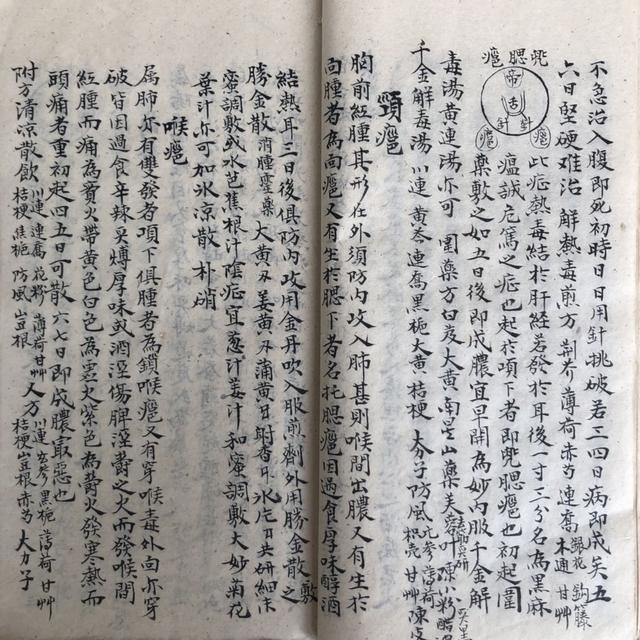 不急治入腹即死初時日用針挑破若三四日病即成矣五
六日堅硬难治 解熱毒煎方 荊芥 薄荷 赤芍 連喬 銀花 木通 鈎藤 甘艸
兜腮癍
帝古
針 針
癍 癍
此症熱毒結於肝経若發於耳後一寸三分名為黑麻
瘟誠危篤之症也起於項下者即兜腮癍也初起圍
藥敷之如五日後即成膿宜早開為妙内服千金解
毒湯黃連湯亦可 圍藥方 大黃 南星 山藥 芙蓉叶
千金解毒湯 川連 黃芩 連喬 黑栀 大黃 桔梗 大力子 防風 元参 枳壳 薄荷 甘艸
頸癍
胸前紅腫其形在外須防内攻入肺甚則喉間出膿又有生於
向腫者為向癍又有生於腮下者名托腮癍因過食厚味醇酒
結熱耳三日後俱防内攻用金丹吹入服煎劑外用勝金散敷之
勝金散 消腫聖藥 大黃 姜黃 蒲黃 射香 氷片 共研細末
蜜調敷或水芭蕉根汁陰症宜葱汁姜汁和蜜調敷大妙菊花
葉汁亦可加氷凉散 朴硝
喉癍
属肺亦有雙發者項下俱腫者為鎖喉癍又有穿喉毒外向亦穿
破皆因過食辛辣炙煿厚味或酒溼傷脾溼欝之火而發喉間
紅腫而痛為實火帶黃色白色為寒火紫色為欝火發寒熱而
頭痛者重初起四五日可散六七日即成膿最惡也
附方清凉散飲 川連 連喬 花粉 薄荷 甘艸 桔梗 焦栀 防風 豆根 又方 川連 玄参 黑栀 薄荷 甘艸 桔梗 豆根 赤芍 大力子